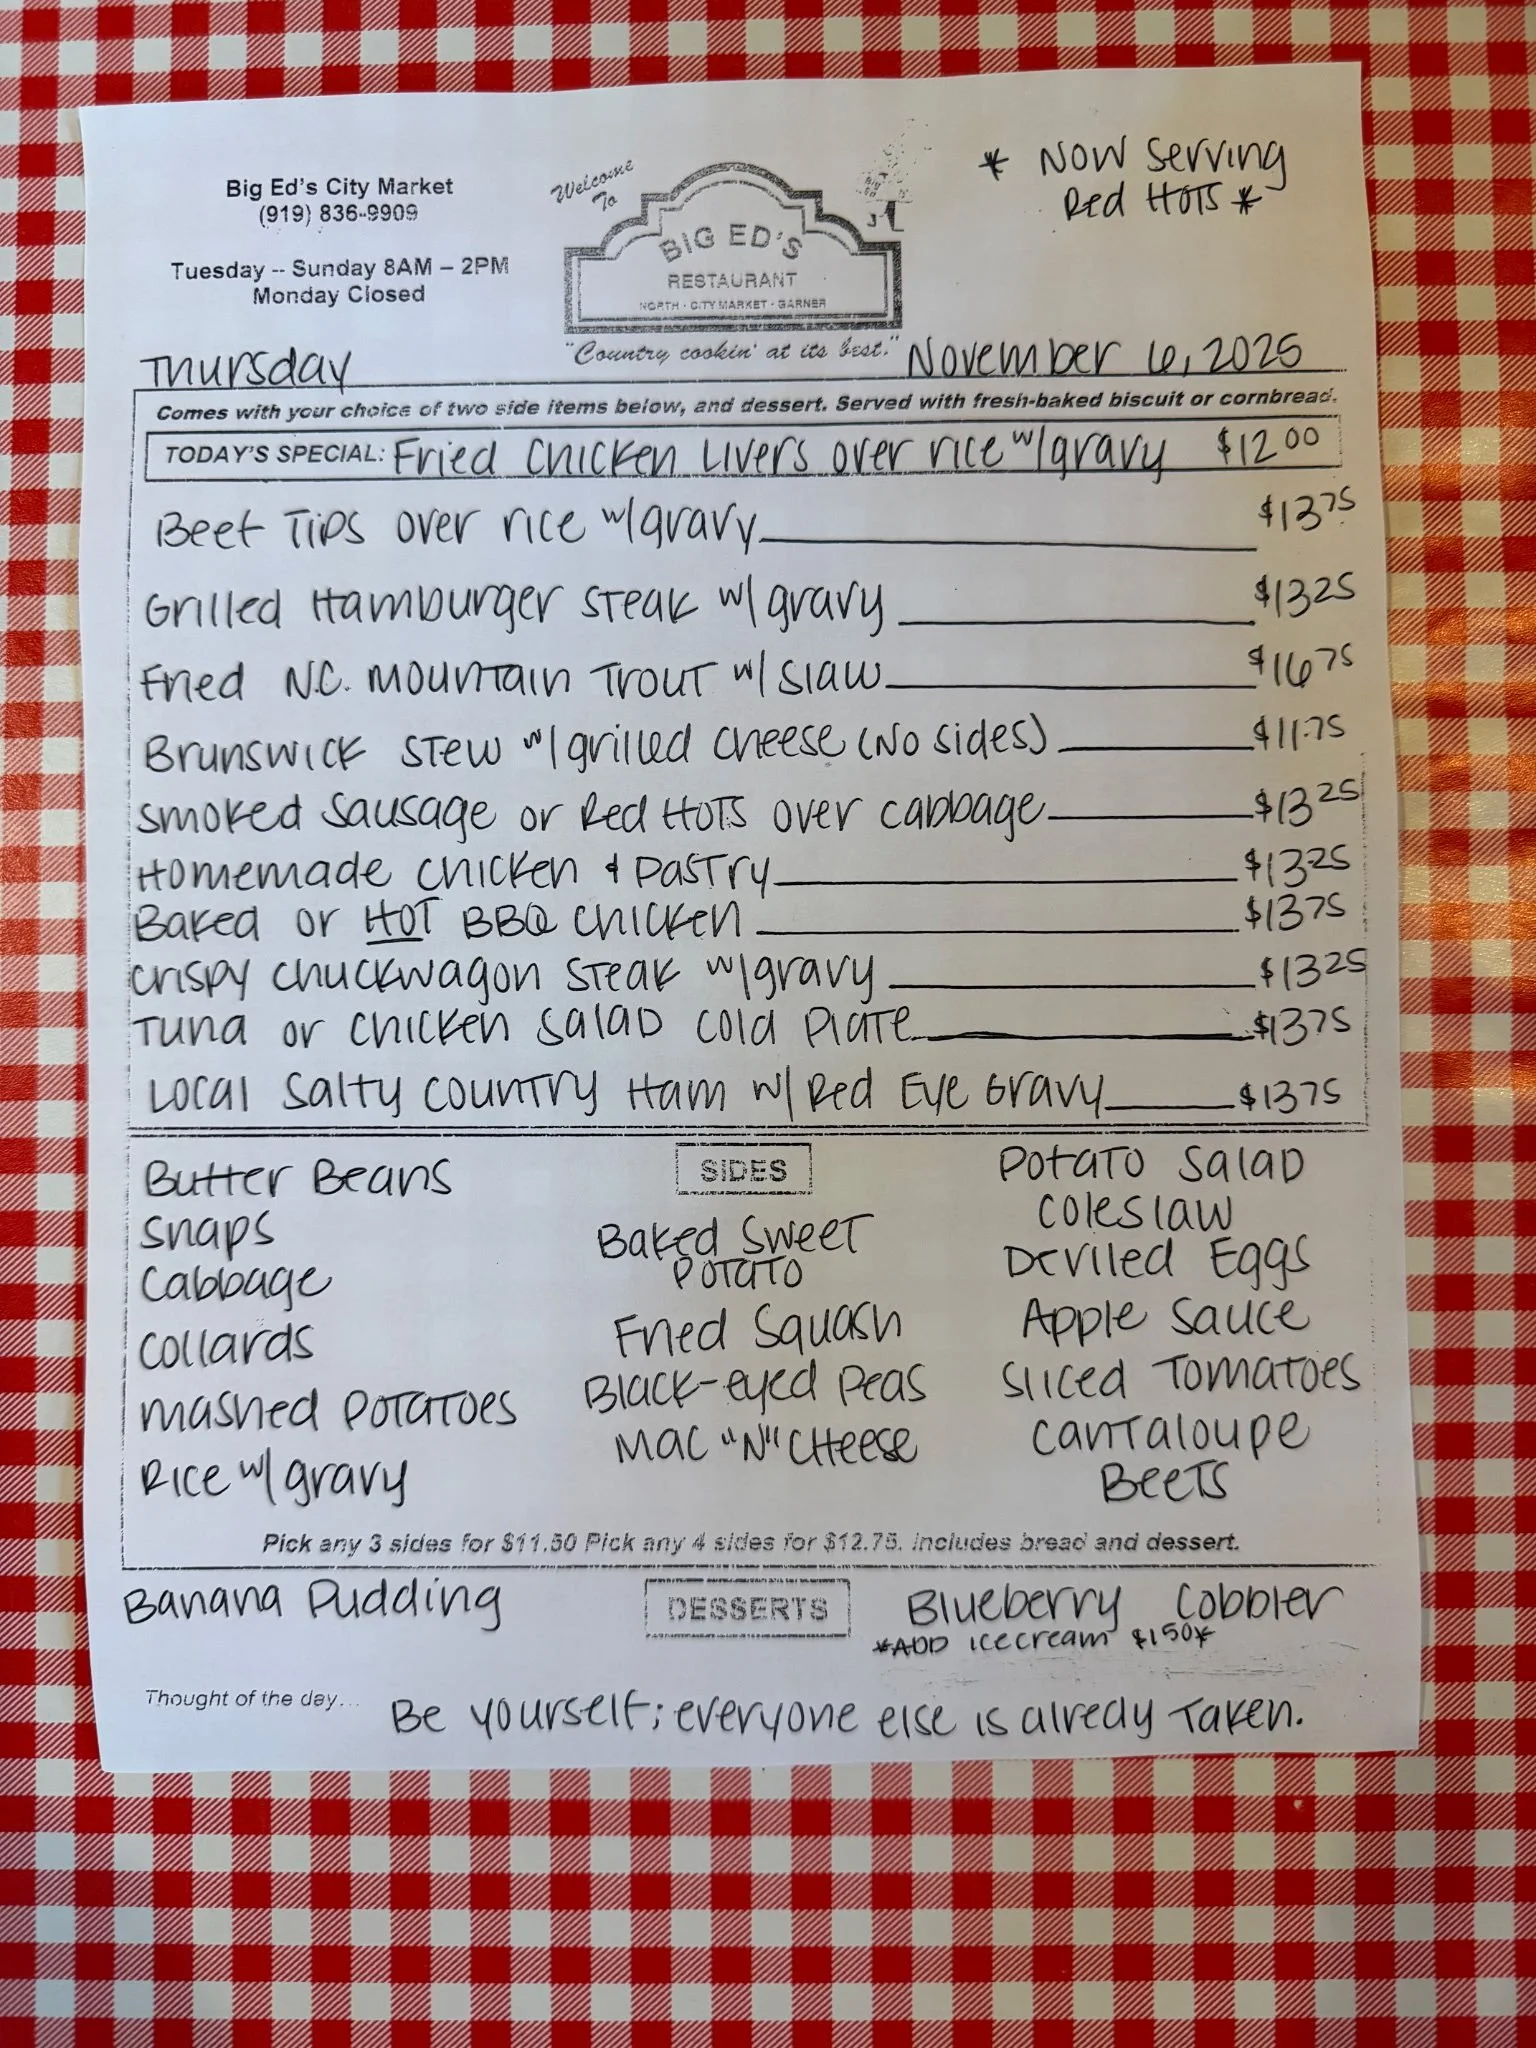 Big Ed's City Market
(919) 836-9909
Tuesday -- Sunday 8AM – 2PM
Monday Closed
Welcome
To
BIG ED'S
RESTAURANT
NORTH · CITY MARKET · GARNER
"Country cookin' at its best."
* NOW Serving
Red HOTS *
Thursday
November 6, 2025
Comes with your choice of two side items below, and dessert. Served with fresh-baked biscuit or cornbread.
TODAY'S SPECIAL: Fried Chicken Livers over rice w/gravy $12.00
Beef Tips over rice w/gravy $13.75
Grilled Hamburger Steak w/ gravy $13.25
Fried N.C. Mountain Trout w/ slaw $16.75
Brunswick Stew w/ grilled cheese (No sides) $11.75
Smoked Sausage or Red Hots over cabbage $13.25
Homemade Chicken & Pastry $13.25
Baked or HOT BBQ Chicken $13.75
Crispy Chuckwagon Steak w/gravy $13.25
Tuna or Chicken Salad Cold Plate $13.75
Local Salty Country Ham w/ Red Eye Gravy $13.75
SIDES
Butter Beans
Snaps
Cabbage
Collards
Mashed Potatoes
Rice w/ gravy
Baked Sweet
Potato
Fried Squash
Black-eyed Peas
Mac "N" Cheese
Potato Salad
Coleslaw
Deviled Eggs
Apple Sauce
Sliced Tomatoes
Cantaloupe
Beets
Pick any 3 sides for $11.50 Pick any 4 sides for $12.75. Includes bread and dessert.
DESSERTS
Banana Pudding
Blueberry Cobbler
*ADD icecream $1.50*
Thought of the day... Be yourself; everyone else is alredy taken.